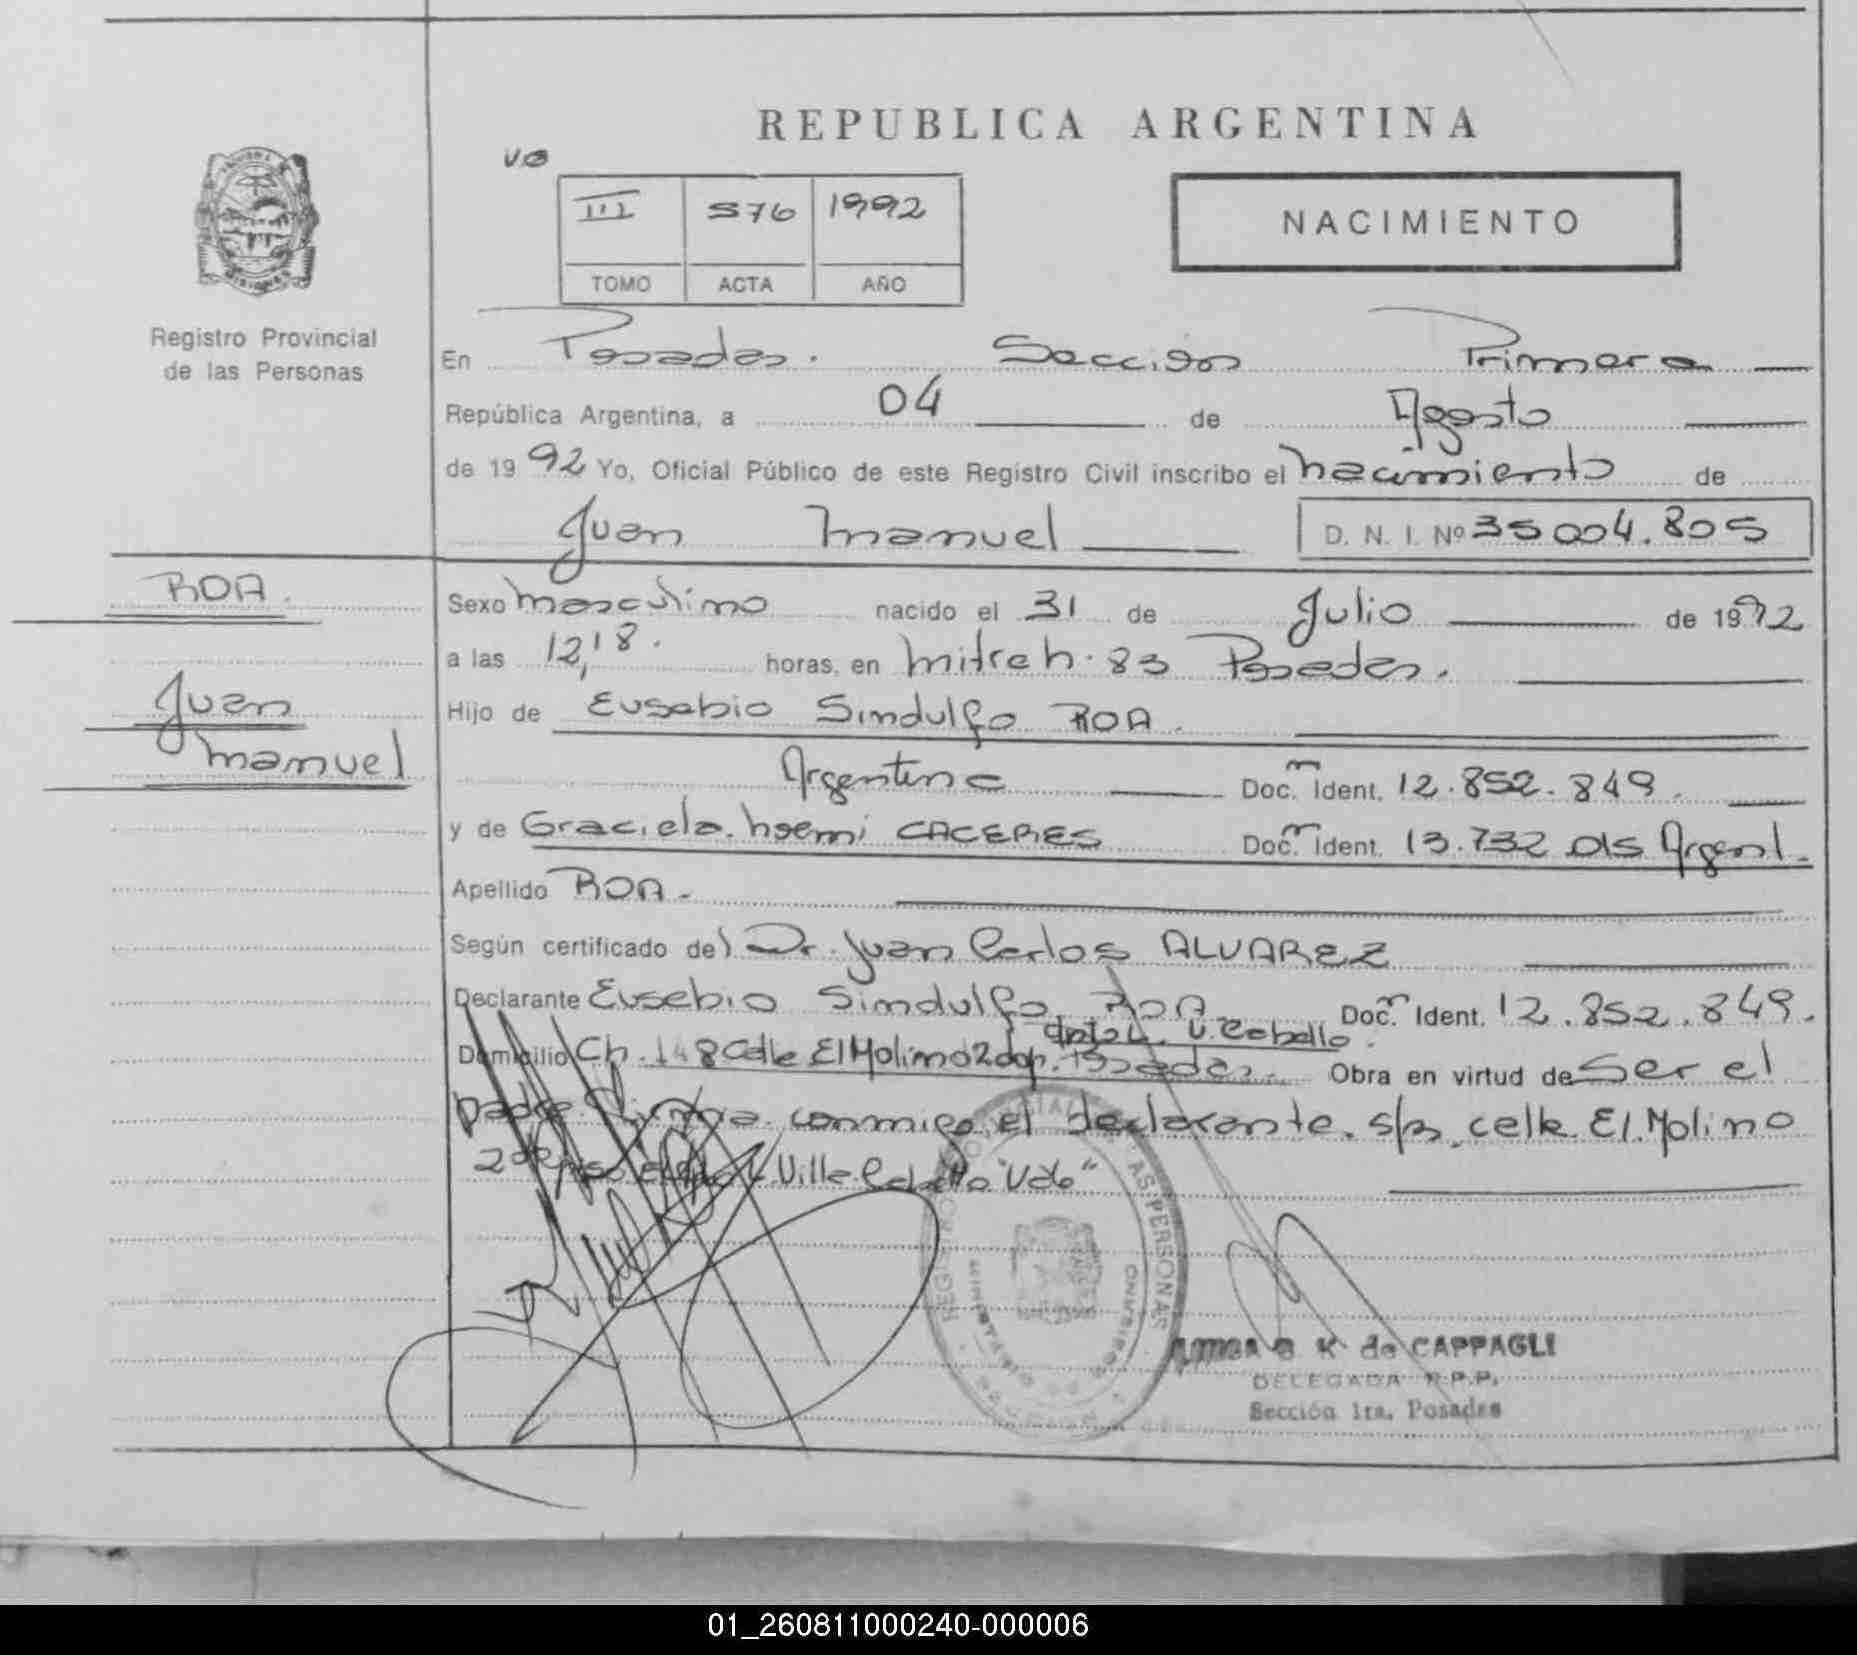 REPUBLICA ARGENTINA
III 576 1992
TOMO ACTA AÑO
NACIMIENTO
Registro Provincial
de las Personas
En Posadas. Sección Primera
República Argentina, a 04 de Agosto
de 1992 Yo, Oficial Público de este Registro Civil inscribo el nacimiento de
Juan Manuel D. N. I. Nº 35004.805
ROA.
Juan
Manuel
Sexo Masculino nacido el 31 de Julio de 1992
a las 12,18. horas, en Mitre h. 83 Posadas.
Hijo de Eusebio Sindulfo ROA.
Argentina Doc. Ident. 12.852.849.
y de Graciela Noemi CACERES Doc. Ident. 13.732 015 Argent.
Apellido ROA.
Según certificado del Dr. Juan Carlos ALVAREZ
Declarante Eusebio Sindulfo ROA Doc. Ident. 12.852.849.
Domicilio Ch. 148 Calle El Molino 2 Posadas. Obra en virtud de Ser el
padre. Firma conmigo el declarante. s/b. calle El Molino
2
REGISTRO PROVINCIAL DE LAS PERSONAS
K de CAPPAGLI
DELEGADA R.P.P.
Sección 1ra. Posadas
01_260811000240-000006